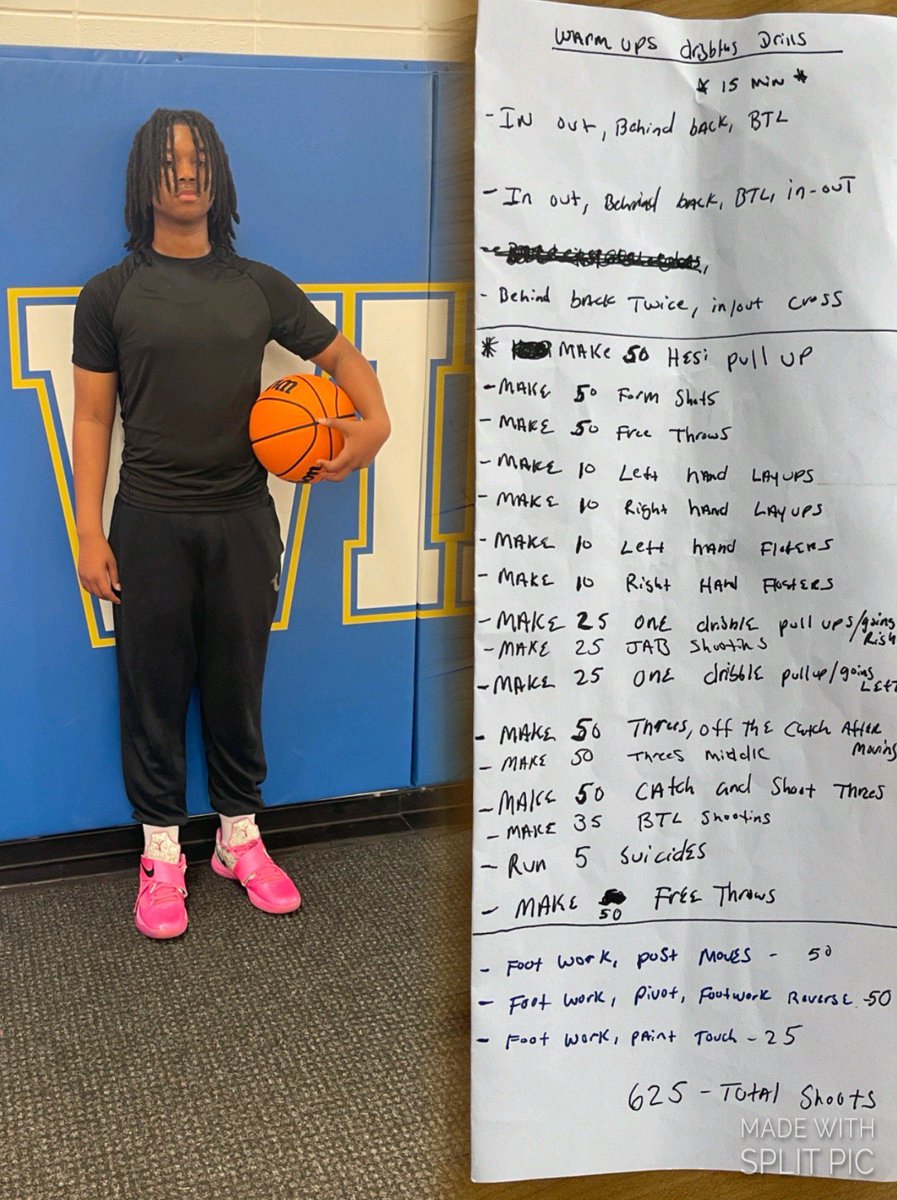 WI
WARM UPS dribbles Drills
* 15 MIN *
- IN out, Behind bACK, BTL
- In out, Behind back, BTL, in-ouT
- Behind back Twice, in/out cross
* MAKE 50 HESi pull UP
- MAKE 50 Form Shots
- MAKE 50 Free Throws
- MAKE 10 Left hAND LAYUPS
- MAKE 10 Right hAND LAYUPS
- MAKE 10 Left hAND FloTERS
- MAKE 10 Right HAND FloTERS
- MAKE 25 ONE dribble pull ups/going Righ
- MAKE 25 JAB Shooting
- MAKE 25 ONE dribble pullup/going LEFT
- MAKE 50 Threes, off The Catch After Moving
- MAKE 50 Threes Middle
- MAKE 50 CAtch and Shoot Threes
- MAKE 35 BTL Shooting
- Run 5 Suicides
- MAKE 50 FREE Throws
- Foot work, post Moves - 50
- Foot work, Pivot, Footwork Reverse - 50
- Foot work, PAint Touch - 25
625 - Total Shoots
MADE WITH
SPLIT PIC